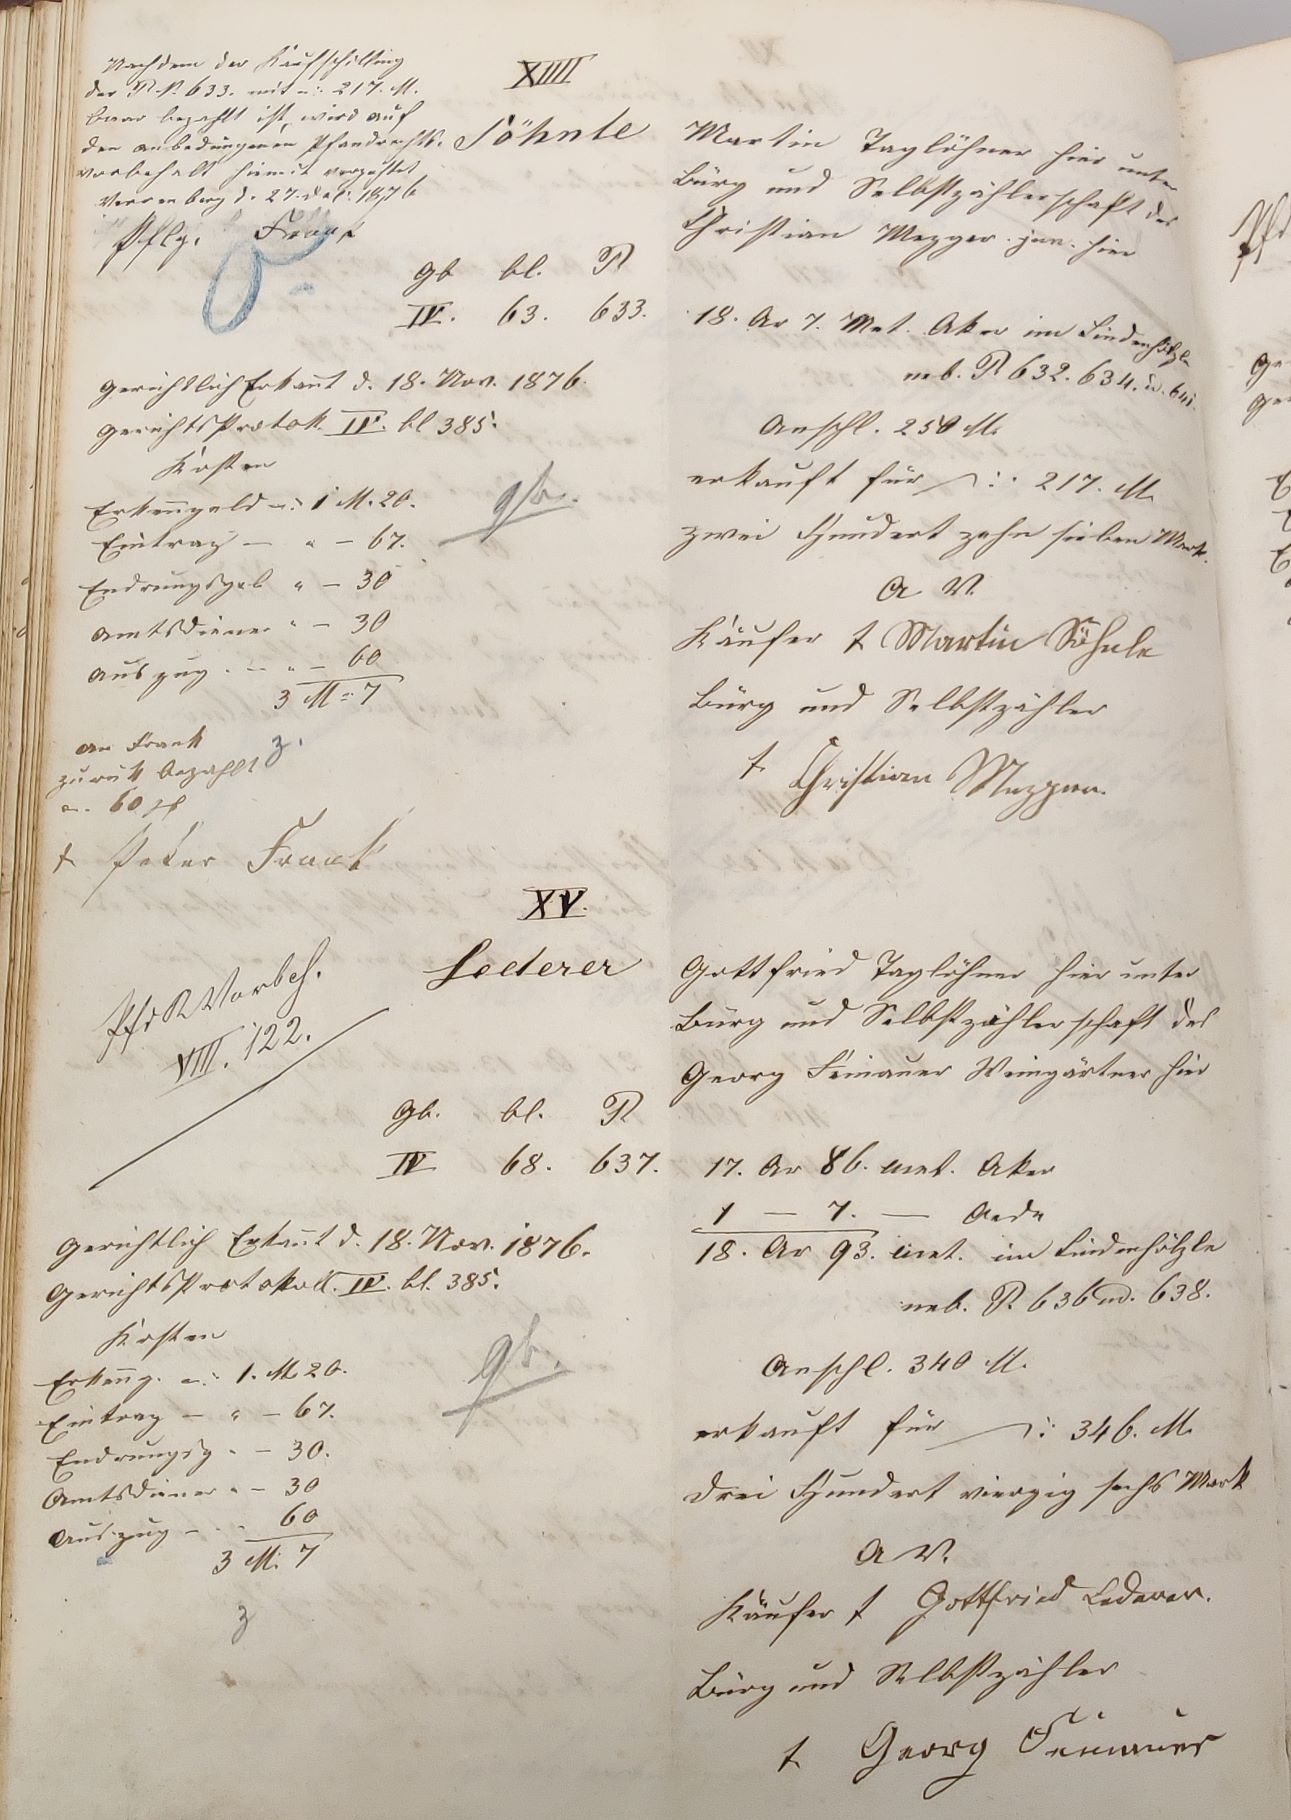 Nachdem der Kaufschilling
der P. N. 633. mit –: 217. M.
baar bezahlt ist, wird auf
den anbedungenen Pfandrechts-
vorbehalt hiemit verzichtet
d. 27. 1876
Pflg. Frank
XIIII
Söhnle
Gb bl. P
IV. 63. 633.
Gerichtlich Erkannt d. 18. Nov. 1876.
Gerichts Protok. IV. bl 385.
Kosten
Erkenngeld –: 1 M. 20.
Eintrag — " — 67.
Endrungsgeb " — 30
Amtsdiener " — 30
Auszug . — " — 60
3 M = 7
gb.
an Frank
zuruk bezahlt
60 pf
3.
† Peter Frank
Martin Taglöhner hier unter
Bürg und Selbstzählerschaft des
Christian Mezger jun. hier
18. Ar 7. Met. Aker im Lindenhölzle
neb. P 632. 634. u. 641.
Anschl. 250 M.
erkauft für —:. 217. M.
zwei Hundert zehn sieben Mark.
A V.
Käufer † Martin Söhnle
Bürg und Selbstzähler
† Christian Mezger.
XV.
Lederer
Pfd R Vorbeh.
VIII. 122.
Gb. bl. P
IV 68. 637.
Gerichtlich Erkannt d. 18. Nov. 1876.
Gerichts Protokoll. IV. bl. 385.
Kosten
Erkenng. –: 1. M 20.
Eintrag — " — 67.
Endrungsg " — 30.
Amtsdiener " — 30
Auszug — " 60
3 M: 7
gb.
3
Gottfried Taglöhner hier unter
Bürg und Selbstzählerschaft des
Georg Feinauer Weingärtner hier
17. Ar 86. met. Aker
1 — 7. — Aede
18. Ar 93. met. im Lindenhölzle
neb. P. 636 und. 638.
Anschl. 340 M.
erkauft für —: 346. M.
drei Hundert vierzig sechs Mark
A V.
Käufer † Gottfried Lederer.
Bürg und Selbstzähler
† Georg Feinauer